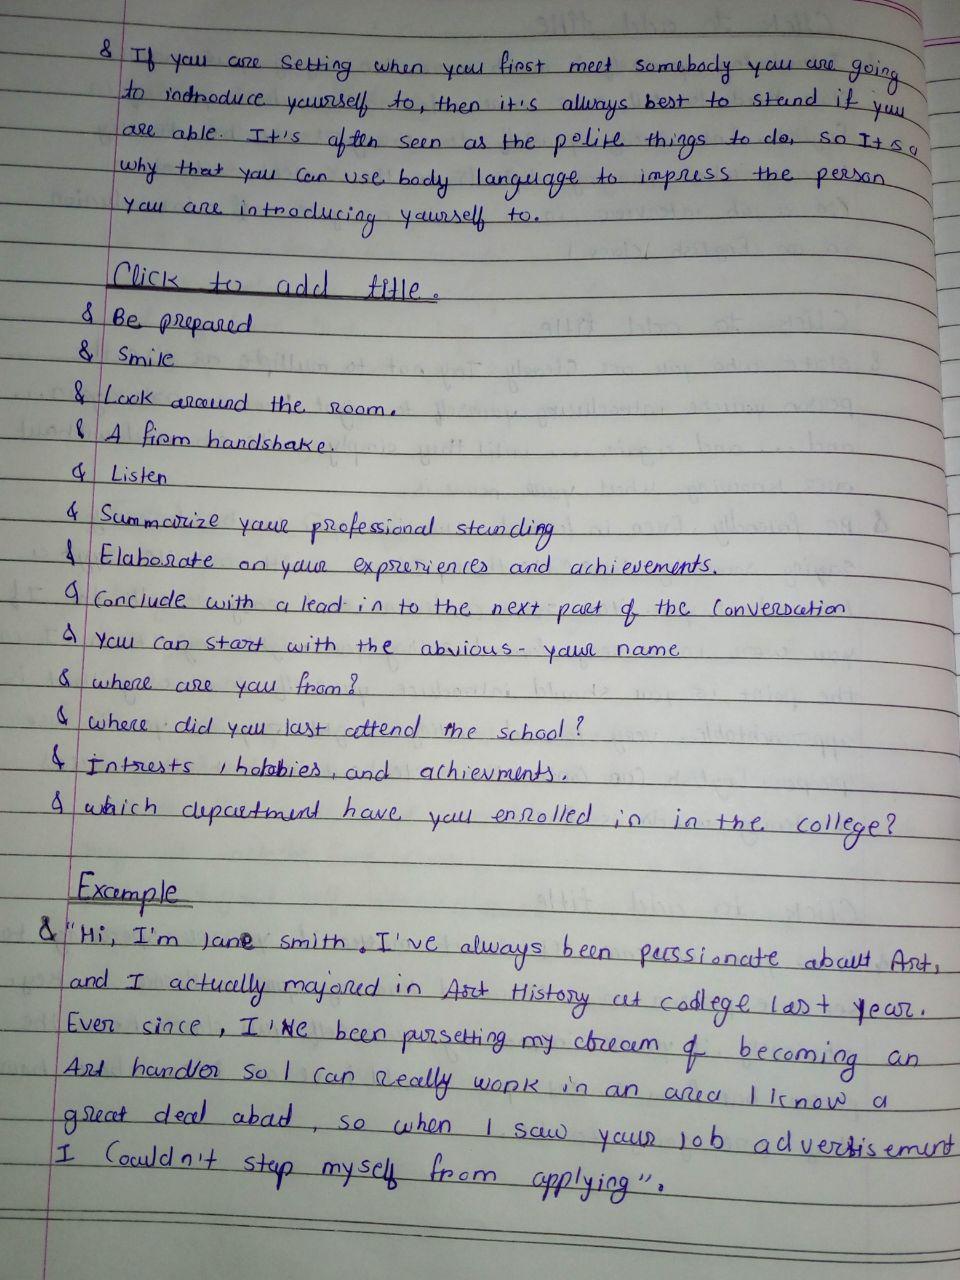 & If you are Setting when you first meet somebody you are going
to indroduce yourself to, then it's always best to stand if you
are able. It's often seen as the polite things to do, so It s a
why that you can use body language to impress the person
you are introducing yourself to.
Click to add title.
& Be prepared
& Smile
& Look around the room.
& A firm handshake.
& Listen
& Summarize your professional standing
& Elaborate on your expreriences and achievements.
& Conclude with a lead-in to the next part of the conversation
& you can start with the abvious - your name
& where are you from?
& where did you last attend the school?
& Intrests, hobbies, and achievments.
& which department have you enrolled in in the college?
Example
& "Hi, I'm Jane smith. I've always been passionate about Art,
and I actually majored in Art History at codlege last year.
Ever since, I've been pursetting my dream of becoming an
Art handler so I can really work in an area I know a
great deal abad, so when I saw your job advertisement
I Couldn't stop myself from applying".